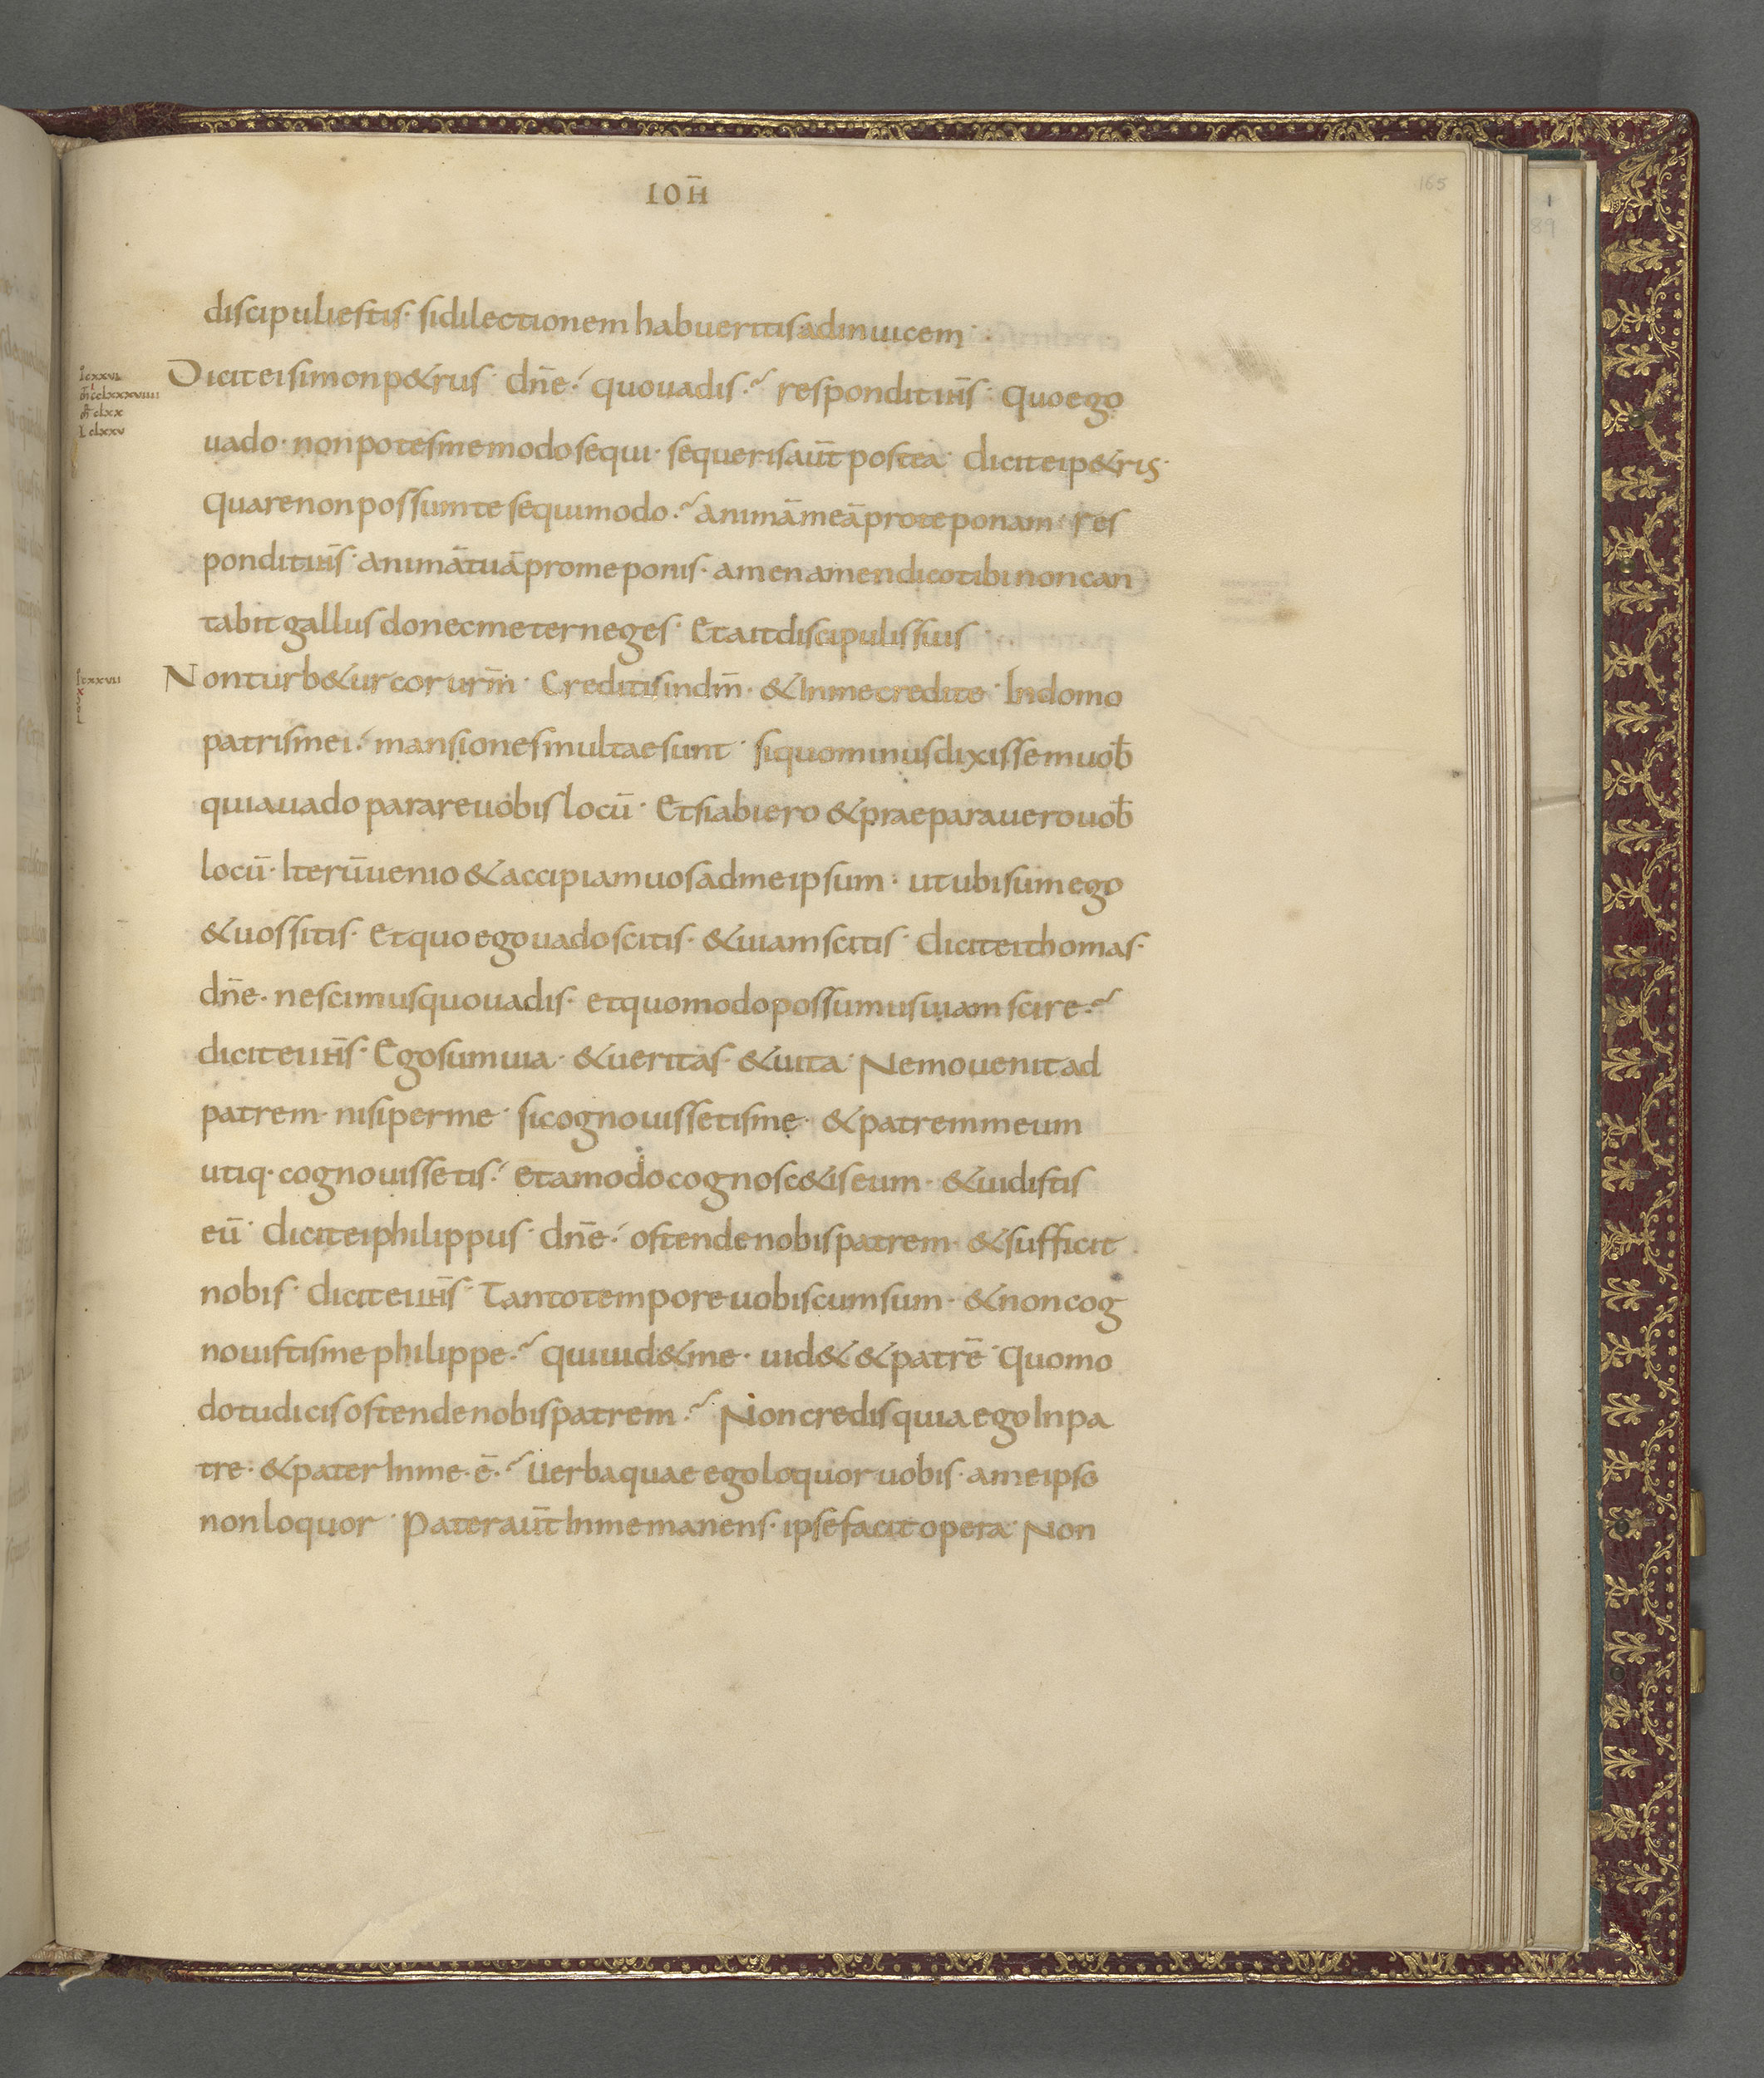 IOH̄
165
1
89
discipuliestis· sidilectionem habueritisadinuicem·
icxxvi
m̄cclxxxviiii
m̄clxx
Lclxxv
Diciteisimonp&rus· dn̄e· quouadis· respondit ih̄s· Quoego
uado· nonpotesmemodosequi· sequerisaūt postea· diciteip&rus·
Quarenonpossumtesequimodo· animāmeāproteponam· res
pondit ih̄s· animātuāpromeponis· amenamendicotibinoncan
tabit gallusdonecmeterneges· Etaitdiscipulissuis·
icxxvii
x
Nonturb&urcorurm̄· Creditisindm̄· &Inmecredite· Indomo
patrismei· mansionesmultaesunt· siquominusdixissemuob̄
quiauado parareuobislocū· Etsiabiero &praeparauerouob̄
locū· Iterūuenio &accipiamuosadmeipsum· utubisumego
&uossitis· Etquoegouadoscitis· &uiamscitis· diciteithomas·
dn̄e· nescimusquouadis· etquomodopossumusuiamscire·
dicitei ih̄s· Egosumuia· &ueritas· &uita· Nemouenitad
patrem· nisiperme· sicognouissetisme· &patremmeum
utiq· cognouissetis· etamodocognosc&iseum· &uidistis
eū· diciteiphilippus· dn̄e· ostendenobispatrem· &sufficit
nobis· dicitei ih̄s· Tantotemporeuobiscumsum· &noncog
nouistisme philippe· quiuid&me· uid& &patrē· Quomo
dotudicisostendenobispatrem· Noncredisquiaego Inpa
tre· &pater Inme· ē· Uerbaquae egoloquoruobis· ameipso
nonloquor· Pateraūt Inmemanens· ipsefacitopera· Non